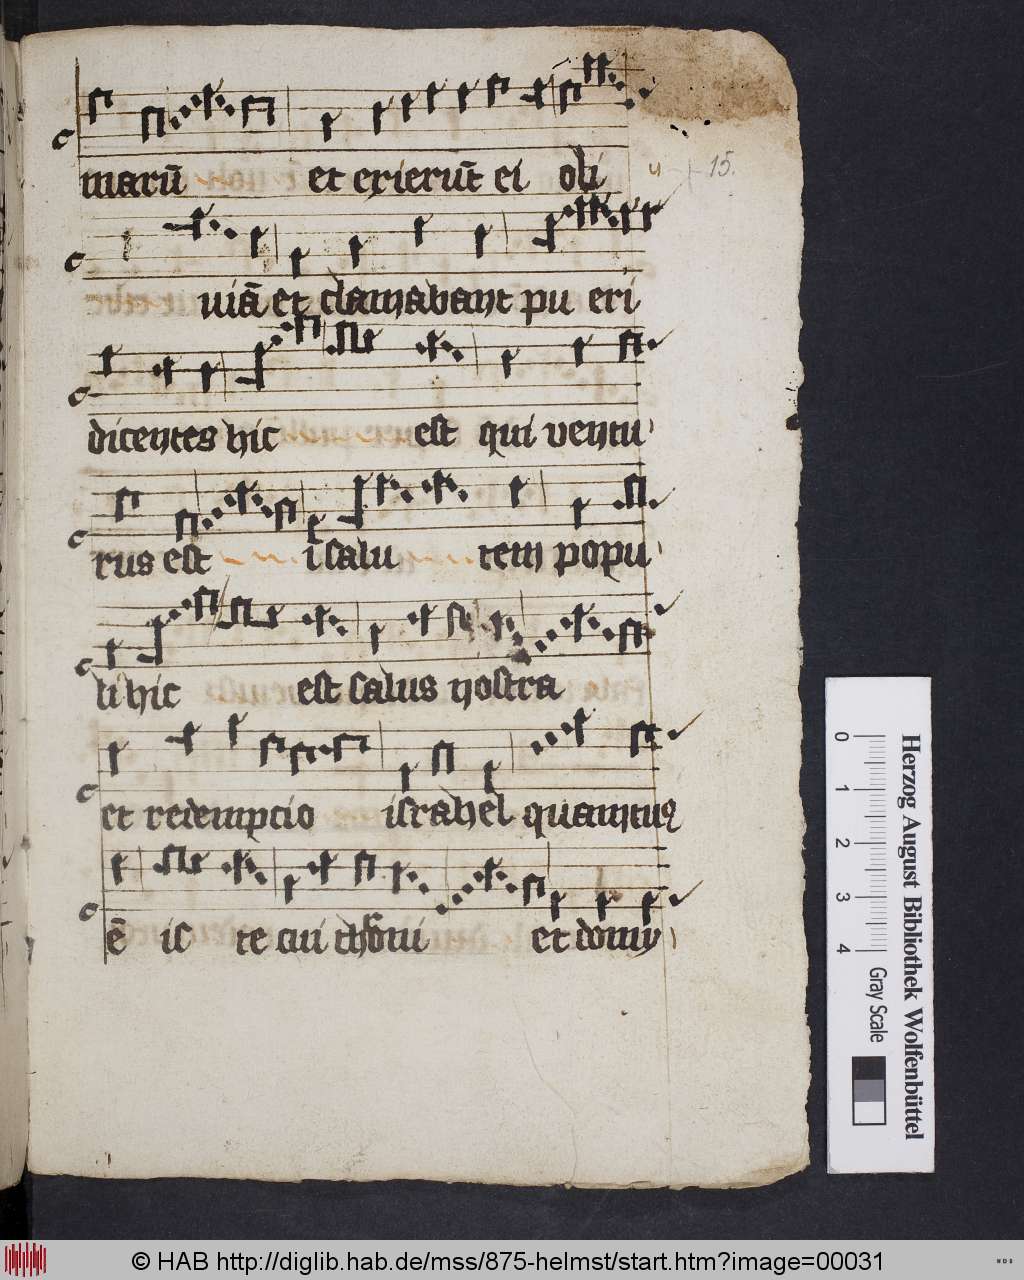 marū et exierūt ei oli
15.
uiā et clamabant pu eri
dicentes hic est qui ventu
rus est ī salu tem popu
li hic est salus nostra
et redempcio israhel quantus
ē is te cui throni et domi
0 1 2 3 4
Herzog August Bibliothek Wolfenbüttel
Gray Scale
© HAB http://diglib.hab.de/mss/875-helmst/start.htm?image=00031